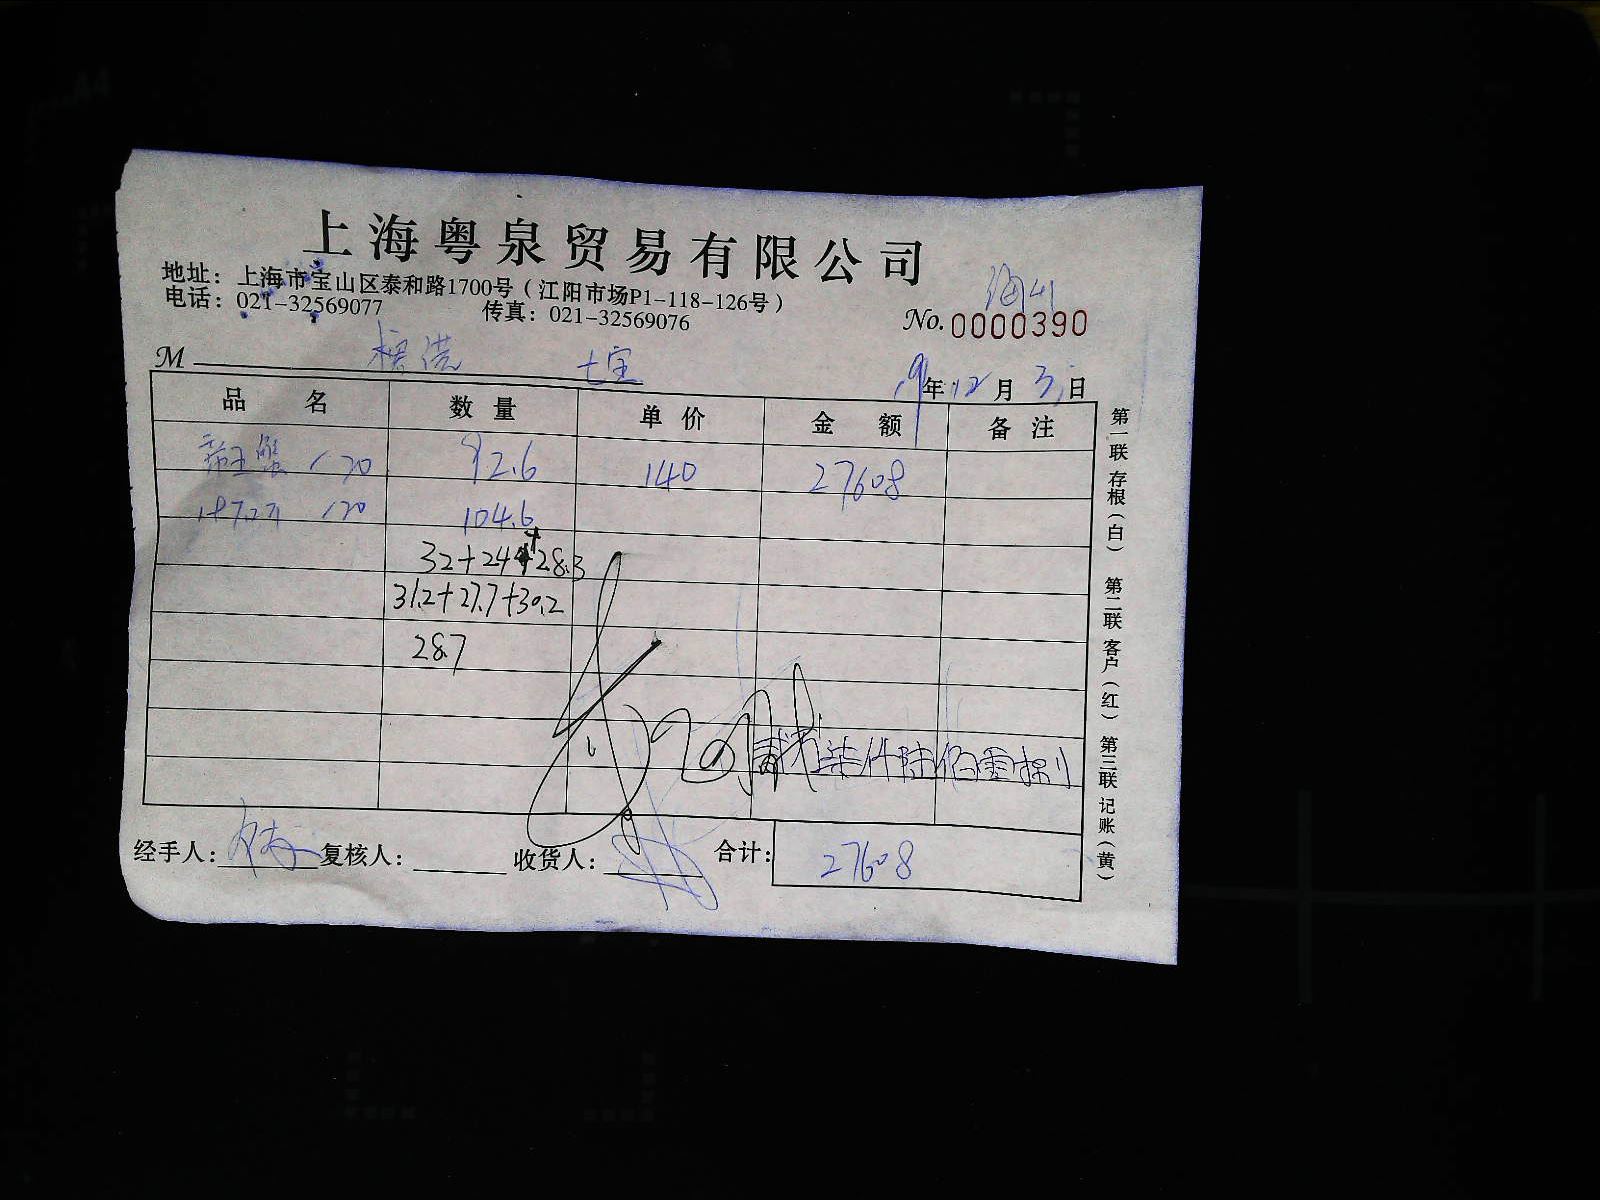 上海粤泉贸易有限公司
地址：上海市宝山区泰和路1700号（江阳市场P1-118-126号）
电话：021-32569077 传真：021-32569076
No.0000390
M 七宝
19年12月3日
品名 数量 单价 金额 备注
帝王蟹 120 92.6 140 27608
120 104.6
32+24.4+28.3
31.2+27.7+30.2
28.7
贰万柒仟陆佰零捌
经手人： 复核人： 收货人： 合计：27608
第一联 存根（白） 第二联 客户（红） 第三联 记账（黄）